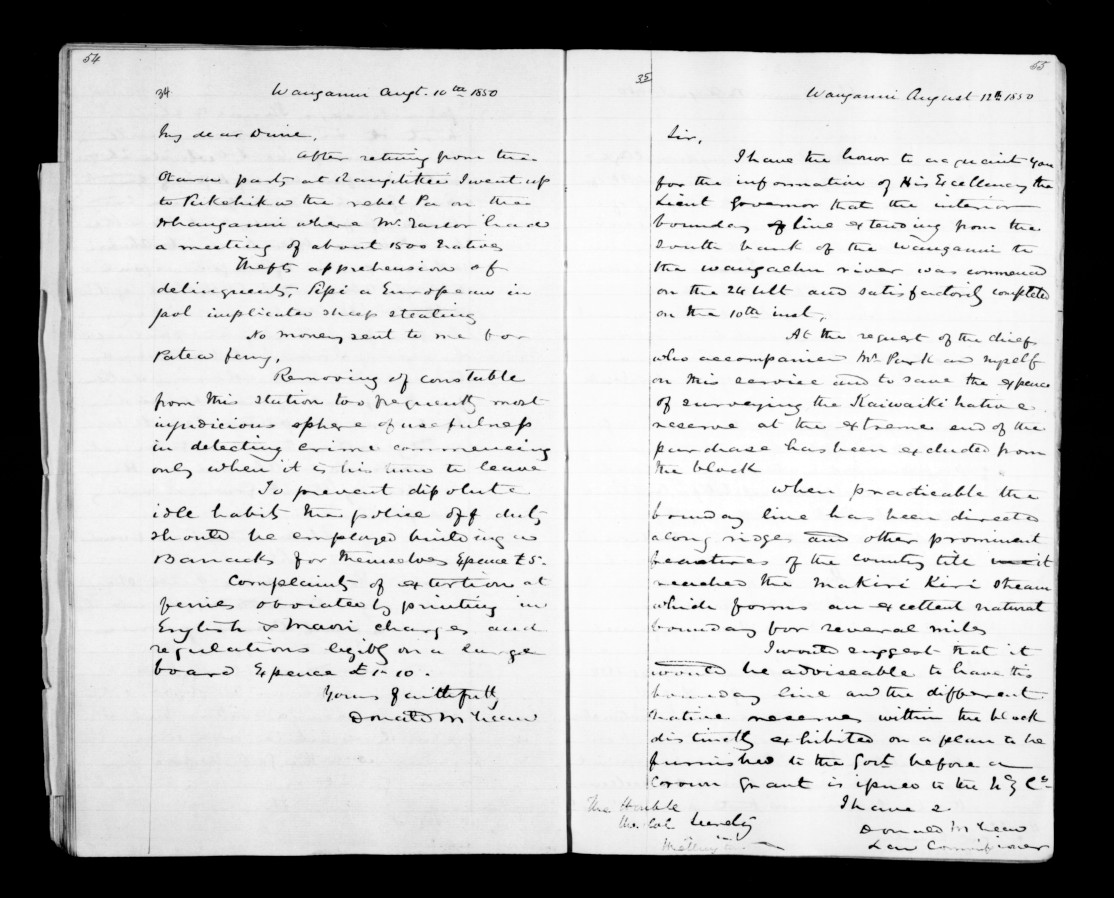 54
34 Wanganui Augt. 10th 1850
My dear Dune,
After retiring from the
Otaran parts at Rangitikei I went up
to Pukehika the rebel Pa on the
Whanganui where Mr. Taylor had
a meeting of about 1500 natives
Thefts apprehension of
delinquents, Pipi a European in
pol implicates sheep stealing
No money sent to me for
Patea ferry,
Removing of constable
from this station too frequently most
injudicious sphere of usefulness
in detecting crime commencing
only when it is his time to leave
To prevent dissolute
idle habits the police off duty
should be employed building
Barracks for themselves Expence £5-
Complaints of extortion at
ferries obviated by printing in
English & Maori charges and
regulations legibly on a large
board Expence £1-10-
Yours faithfully
Donald McLean
55
35
Wanganui August 12th 1850
Sir,
I have the honor to acquaint you
for the information of His Excellency the
Lieut Governor that the interior
boundary of line extending from the
South bank of the Wanganui to
the wangaehu river was commenced
on the 24 ult and satisfactorily completed
on the 10th inst,
At the request of the chiefs
who accompanied Mr Park and myself
on this service and to save the expence
of surveying the Kaiwaiki native
reserve at the extreme end of the
purchase has been excluded from
the block
When practicable the
boundary line has been directed
along ridges and other prominent
features of the country till it
reached the Makiri Kiri stream
which forms an excellent natural
boundary for several miles
I would suggest that it
would be adviseable to have this
boundary line and the different
native reserves within the block
distinctly exhibited on a plan to be
furnished to the Govt before a
Crown Grant is issued to the NZ Co-
I have &
Donald McLean
Land Commissioner
The Honble
the Col Secrety
Wellington